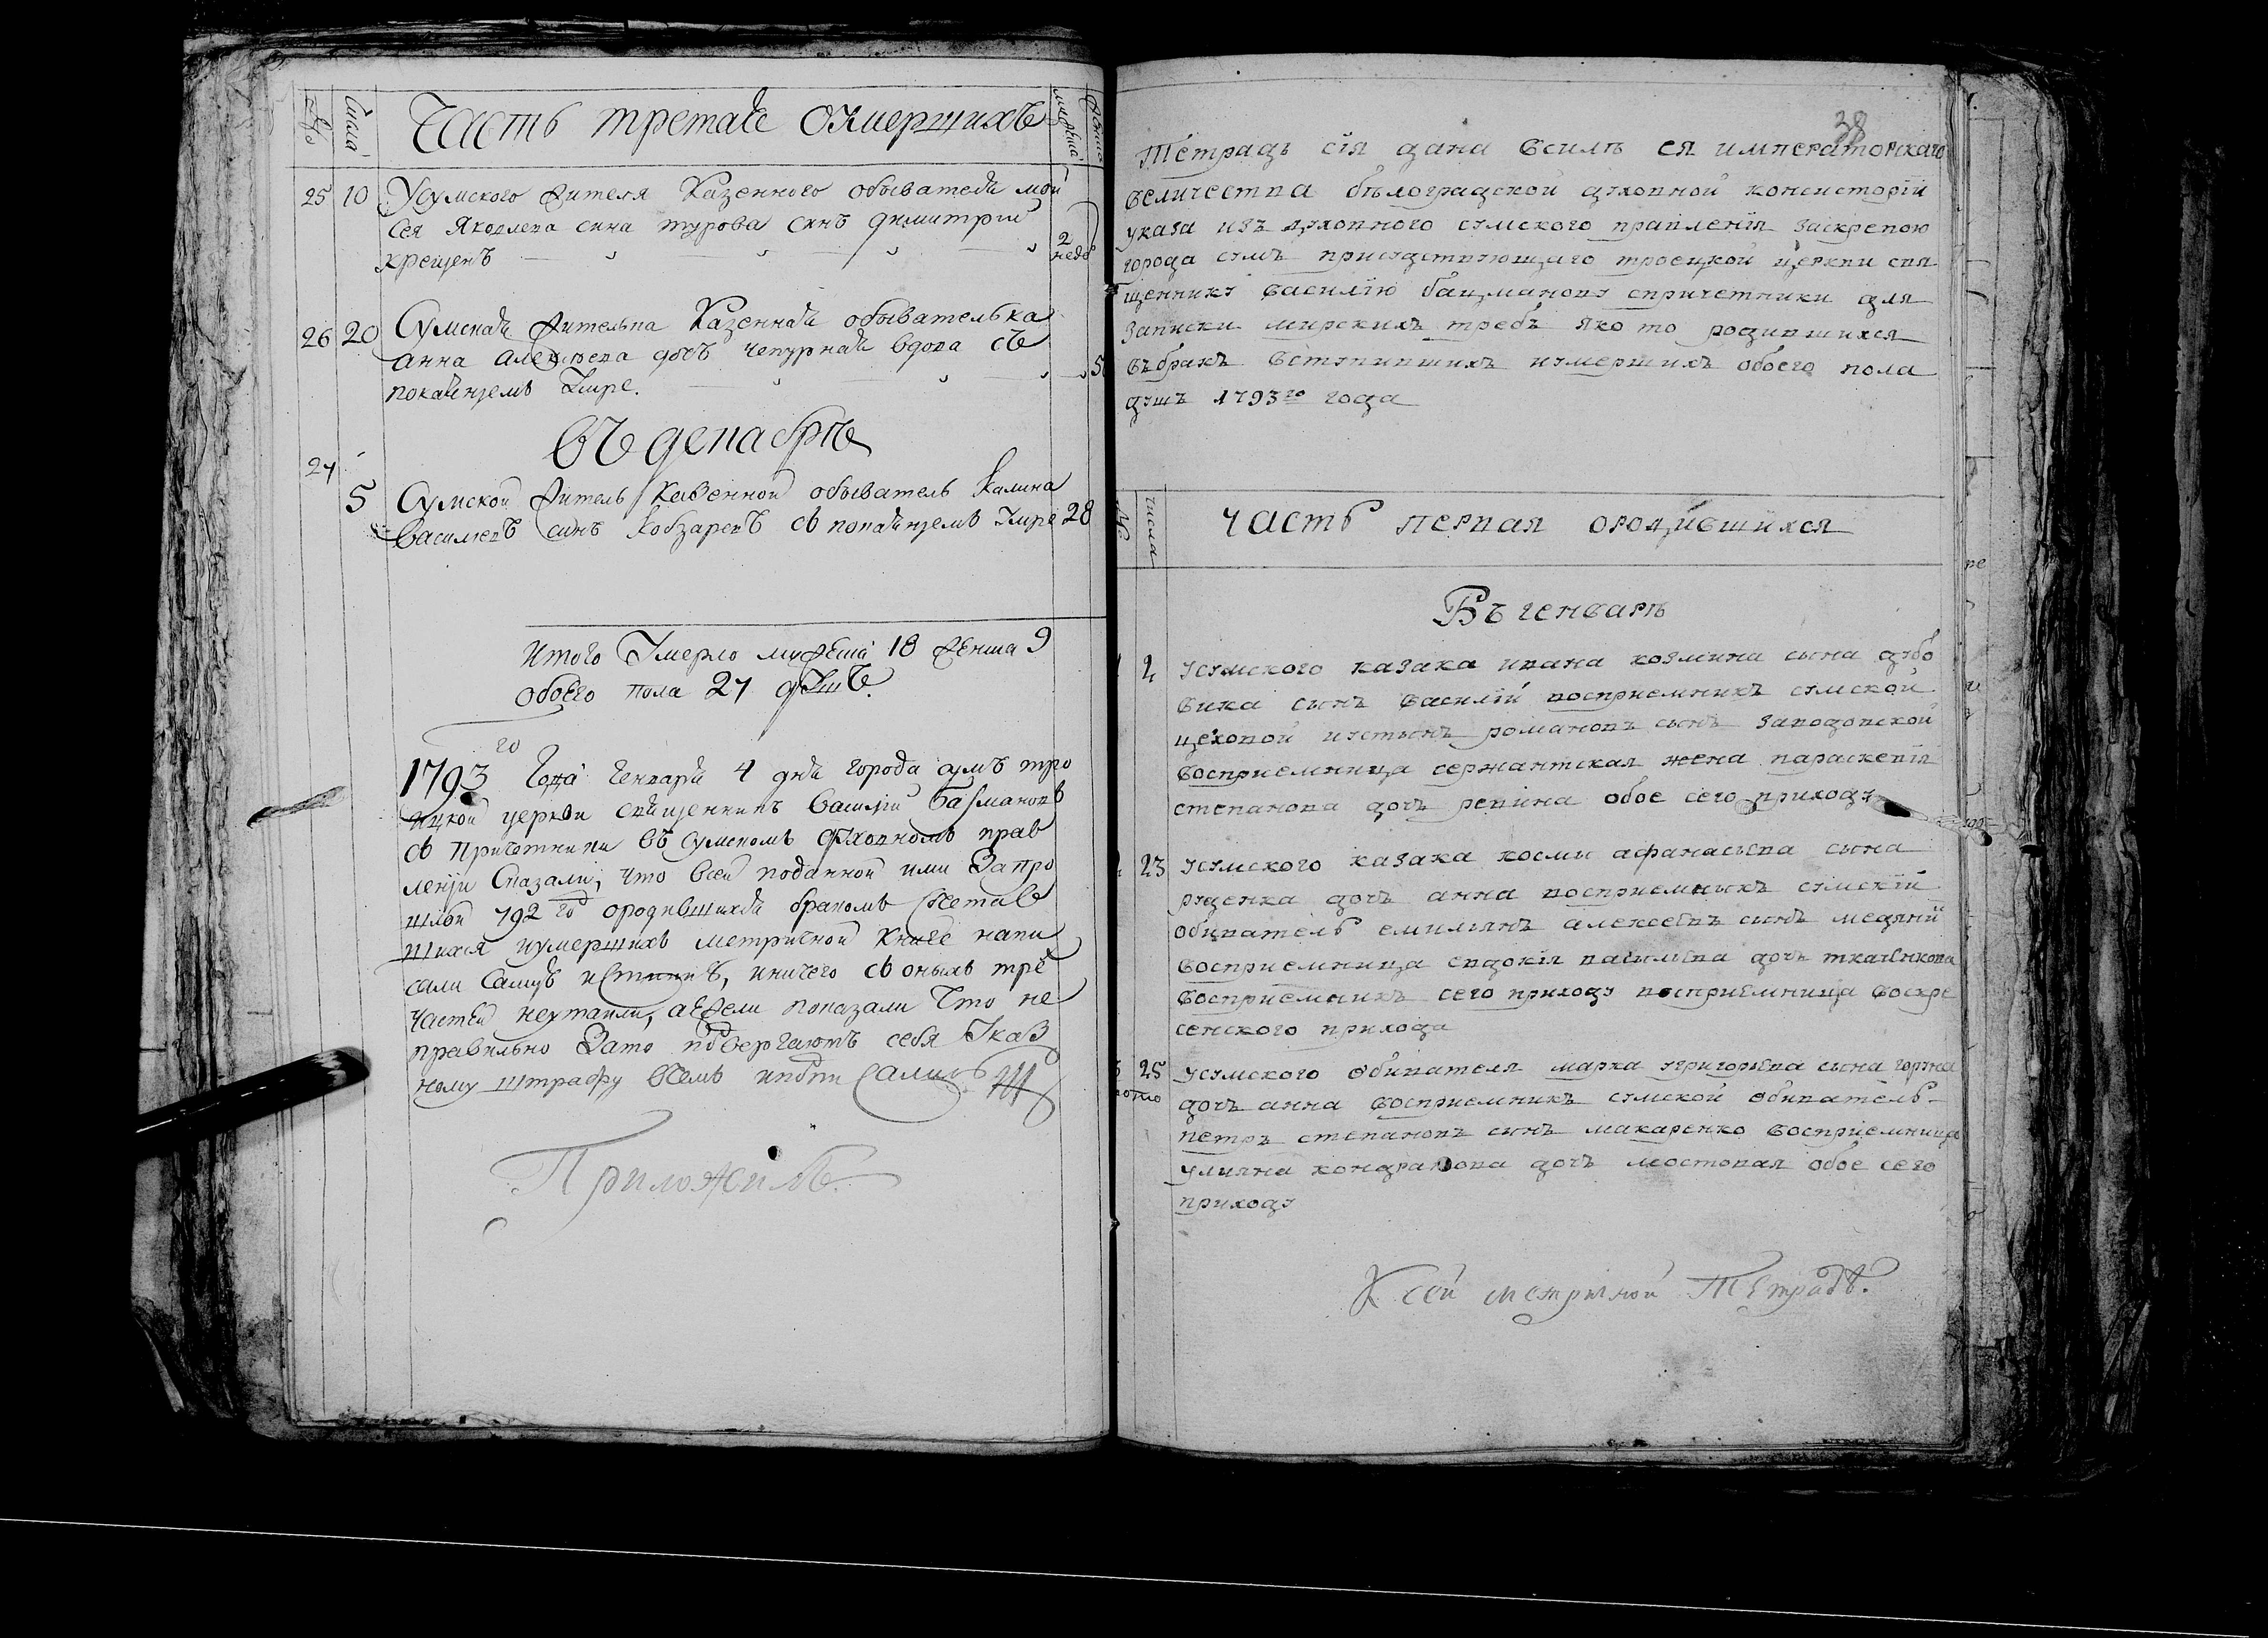 № числа Часть третая оумерщихъ мужеска женска
25 10 Усумского жителя Казенного обывателя мои
сея Яковлева сина турова синъ димитрий
крещенъ 2 неде
26 20 Сумская жителька Казенная обывателька
анна алексеева дочь чепурная вдова съ
покаянием умре. 5
Въ декабрѣ
27
5 Сумской житель Казенной обыватель калина
василиевъ синъ кобзаревъ съ покаянием умре 28
Итого умерло мужеска 18 женска 9
обоего пола 27 душъ
1793 го Года Генваря 4 дня города сумъ тро
ицкой церкви священникъ василий Бацмановъ
съ причетники въ сумскомъ духовномъ прав
лении сказали, что всей поданной ими за про
шлой 792 го ородившихся бракомъ сочетав
шихся иумершихъ метричной книге напи
сали самую истинну, иничего съ оныхъ трех
частей неутаили, аежели показали что не
правильно зато подвергаютъ себя указ
ному штрафу въсемъ иподпи сались
Приложилъ
38
Тетрадь сія дана всилѣ ея императорскаго
величества бѣлоградской духовной консисторіи
указа изъ духовного сумского правленія заскрепою
города сумъ присудствующаго троецкой церкви свя
щеннику василію бацманову спричетники для
записки мирскихъ требъ яко то родившихся
въбракъ вступившихъ иумершихъ обоего пола
душъ 1793го года
№ числа часть первая ородившихся
Въ генварѣ
2 усумского казака ивана козмина сына дубо
вика сынъ василій восприемникъ сумской
цеховой иустынъ романовъ сынъ заводовской
восприемница сержантская жена параскевія
степанова дочь репина обое сего приходу
23 усумского казака космы афанасьева сына
руденка дочь анна восприемныкъ сумскій
обиватель емилиянъ алексеевъ синъ медяній
восприемница евдокія васильева дочь ткаченкова
восприемникъ сего приходу восприемница воскре
сенского прихода
25 усумского обивателя марка григорьева сына горуна
дочь анна восприемникъ сумской обиватель
петръ степановъ сынъ макаренко восприемница
улияна кондратова дочь мостовая обое сего
приходу
К сей метричной Тетраде.